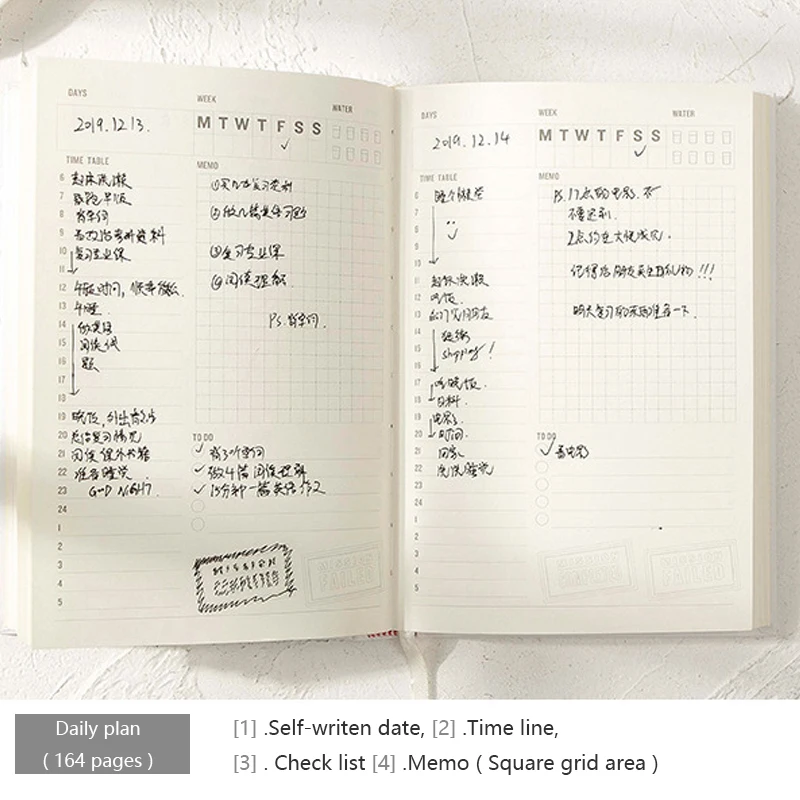 DAYS
WEEK
WATER
2019.12.13.
M T W T F S S
TIME TABLE
MEMO
6 起床洗漱
7 早饭
8 背单词
9 看政治考研资料
10 复习专业课
11
12 午饭时间,
13 午睡.
14 做英语
15 阅读
16 题
17
18
19 晚饭,
20 总结复习情况
21 阅读课外书籍
22 准备睡觉.
23 GOOD NIGHT.
24
1
2
3
4
5
③复习专业课
④阅读理解
Ps.背单词.
TO DO
背30个单词
做4篇阅读理解
15分钟一篇英语作文
MISSION
MISSION
FAILED
DAYS
WEEK
WATER
2019.12.14
M T W T F S S
TIME TABLE
MEMO
6 睡个懒觉
7
8
9
10
11 起床洗漱
12 吃饭.
13 出门见朋友
14 逛街
15 shopping!
16
17 吃晚饭.
18
19 电影
20 时间.
21 回家
22 洗洗睡觉
23
24
1
2
3
4
5
Ps.17点的电影.
不要迟到.
2点约在大悦城见.
记得给朋友买生日礼物!!!
明天复习的东西准备一下.
TO DO
看电影
MISSION
MISSION
FAILED
Daily plan
( 164 pages )
[1] .Self-writen date, [2] .Time line,
[3] . Check list [4] .Memo ( Square grid area )